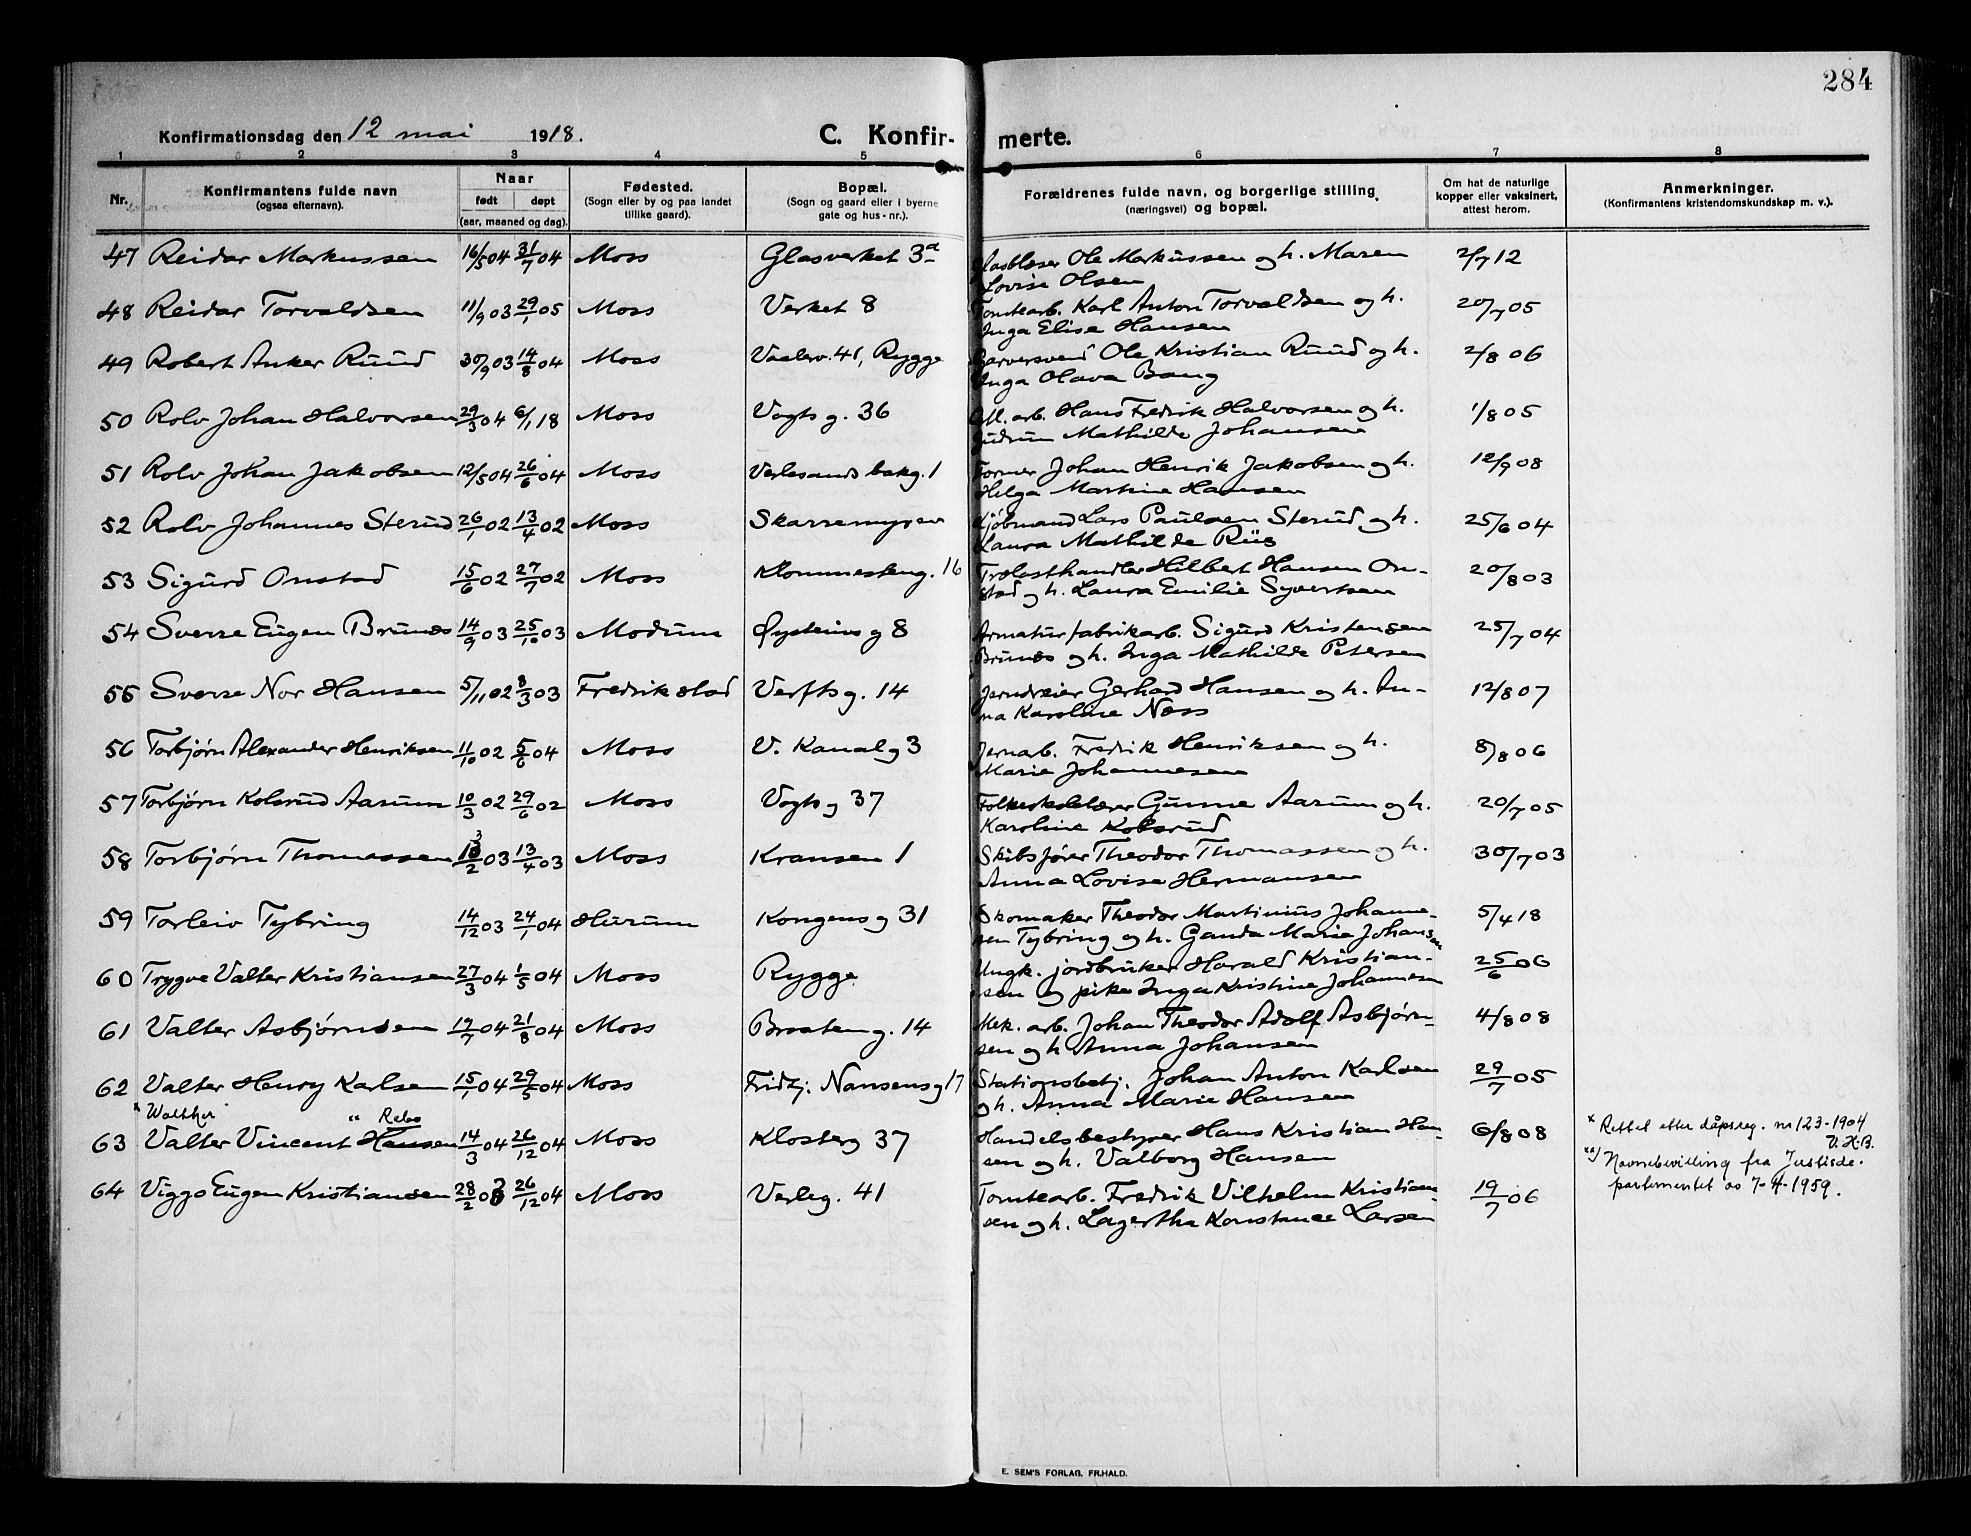 284
Konfirmationsdag den 12 mai 1918. C. Konfir- merte.
1 2 3 4 5 6 7 8
Nr. Konfirmantens fulde navn (ogsaa efternavn). Naar født døpt (aar, maaned og dag). Fødested. (Sogn eller by og paa landet tillike gaard). Bopæl. (Sogn og gaard eller i byerne gate og hus-nr.). Forældrenes fulde navn, og borgerlige stilling (næringsvei) og bopæl. Om hat de naturlige kopper eller vaksinert, attest herom. Anmerkninger. (Konfirmantens kristendomskundskap m. v.).
47 Reidar Markussen 16/5 04 31/7 04 Moss Glasverket 3a Glasblæser Ole Markussen og h. Maren 2/7 12
Lovise Olsen
48 Reidar Torvaldsen 11/9 03 29/1 05 Moss Verket 8 Tomtearb. Karl Anton Torvaldsen og h. 20/7 05
Inga Elise Hansen
49 Robert Anker Ruud 30/9 03 14/8 04 Moss Vaalerv. 41, Rygge Garversvend Ole Kristian Ruud og h. 2/8 06
Inga Olava Bang
50 Rolv Johan Halvorsen 29/3 04 6/1 18 Moss Vogts g. 36 arb. Hans Fredrik Halvorsen og h. 1/8 05
Gudrun Mathilde Johansen
51 Rolv Johan Jakobsen 12/5 04 26/6 04 Moss Verlesands bakg. 1 Former Johan Henrik Jakobsen og h. 12/9 08
Helga Martine Hansen
52 Rolv Johannes Sterud 26/1 02 13/4 02 Moss Skarremyren Kjøbmand Lars Paulsen Sterud og h. 25/6 04
Laura Mathilde Riis
53 Sigurd Onstad 15/6 02 27/7 02 Moss Klommesteng. 16 Trælasthandler Hilbert Hansen On- 20/8 03
stad og h. Laura Emilie Syvertsen
54 Sverre Eugen Brunes 14/9 03 25/10 03 Modum Øysteins g 8 Armaturfabrikarb. Sigurd Kristensen 25/7 04
Brunes og h. Inga Mathilde Petersen
55 Sverre Nor Hansen 5/11 02 8/3 03 Fredrikstad Verfts g. 14 Jerndreier Gerhard Hansen og h. An- 12/8 07
na Karoline Næss
56 Torbjørn Alexander Henriksen 11/10 02 5/6 04 Moss V. Kanalg 3 Jernarb. Fredrik Henriksen og h. 8/8 06
Marie Johannesen
57 Torbjørn Kolsrud Aarum 10/3 02 29/6 02 Moss Vogts g 37 Folkeskolelærer Gunne Aarum og h. 20/7 05
Karoline Kolsrud
58 Torbjørn Thomassen 13/2 03 13/4 03 Moss Kransen 1 Skibsfører Theodor Thomassen og h. 30/7 03
Anna Lovise Hermansen
59 Torleiv Tybring 14/12 03 24/1 04 Hurum Kongens g 31 Skomaker Theodor Martinius Johanne- 5/4 18
sen Tybring og h. Ganda Marie Johansen
60 Trygve Valter Kristiansen 27/3 04 1/5 04 Moss Rygge Ungk. jordbruker Harald Kristian- 25/6 06
sen og pike Inga Kristine Johannesen
61 Valter Asbjørnsen 19/7 04 21/8 04 Moss Braaten g. 14 Mek. arb. Johan Theodor Adolf Asbjørn- 4/8 08
sen og h Anna Johansen
62 Valter Henry Karlsen 15/1 04 29/5 04 Moss Fridtj. Nansens g 17 Stationsbetj. Johan Anton Karlsen 29/7 05
og h. Anna Marie Hansen
x Walther xx Rebo
63 Valter Vincent Hansen 14/3 04 26/12 04 Moss Klosterg 37 Handelsbestyrer Hans Kristian Han- 6/8 08 x Rettet etter dåpsreg. nr 123-1904
sen og h. Valborg Hansen V. H. B.
xx) Navnebevilling fra Justisde-
64 Viggo Eugen Kristiansen 28/2 03 26/12 04 Moss Verleg. 41 Tomtearb. Fredrik Vilhelm Kristian- 19/7 06 partementet av 7-4-1959.
sen og h. Lagertha Konstance Larsen
E. SEM'S FORLAG. FR.HALD.